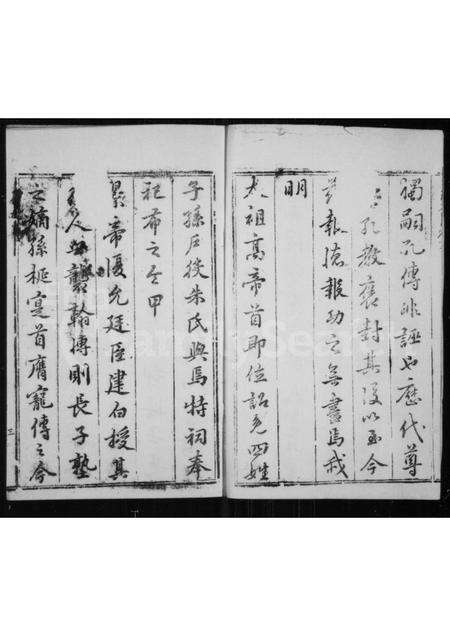 獨嗣孔傳非誣也歷代尊
孔教褒封其後以至今
崇報德報功之無盡焉我
明
太祖高帝首即位詔免四姓
子孫戶役朱氏與焉特祠奉
祀希之至甲
景帝復允廷臣建白授其
人以襲翰博則長子塾
之嫡孫梴寔首膺寵傳之今
三